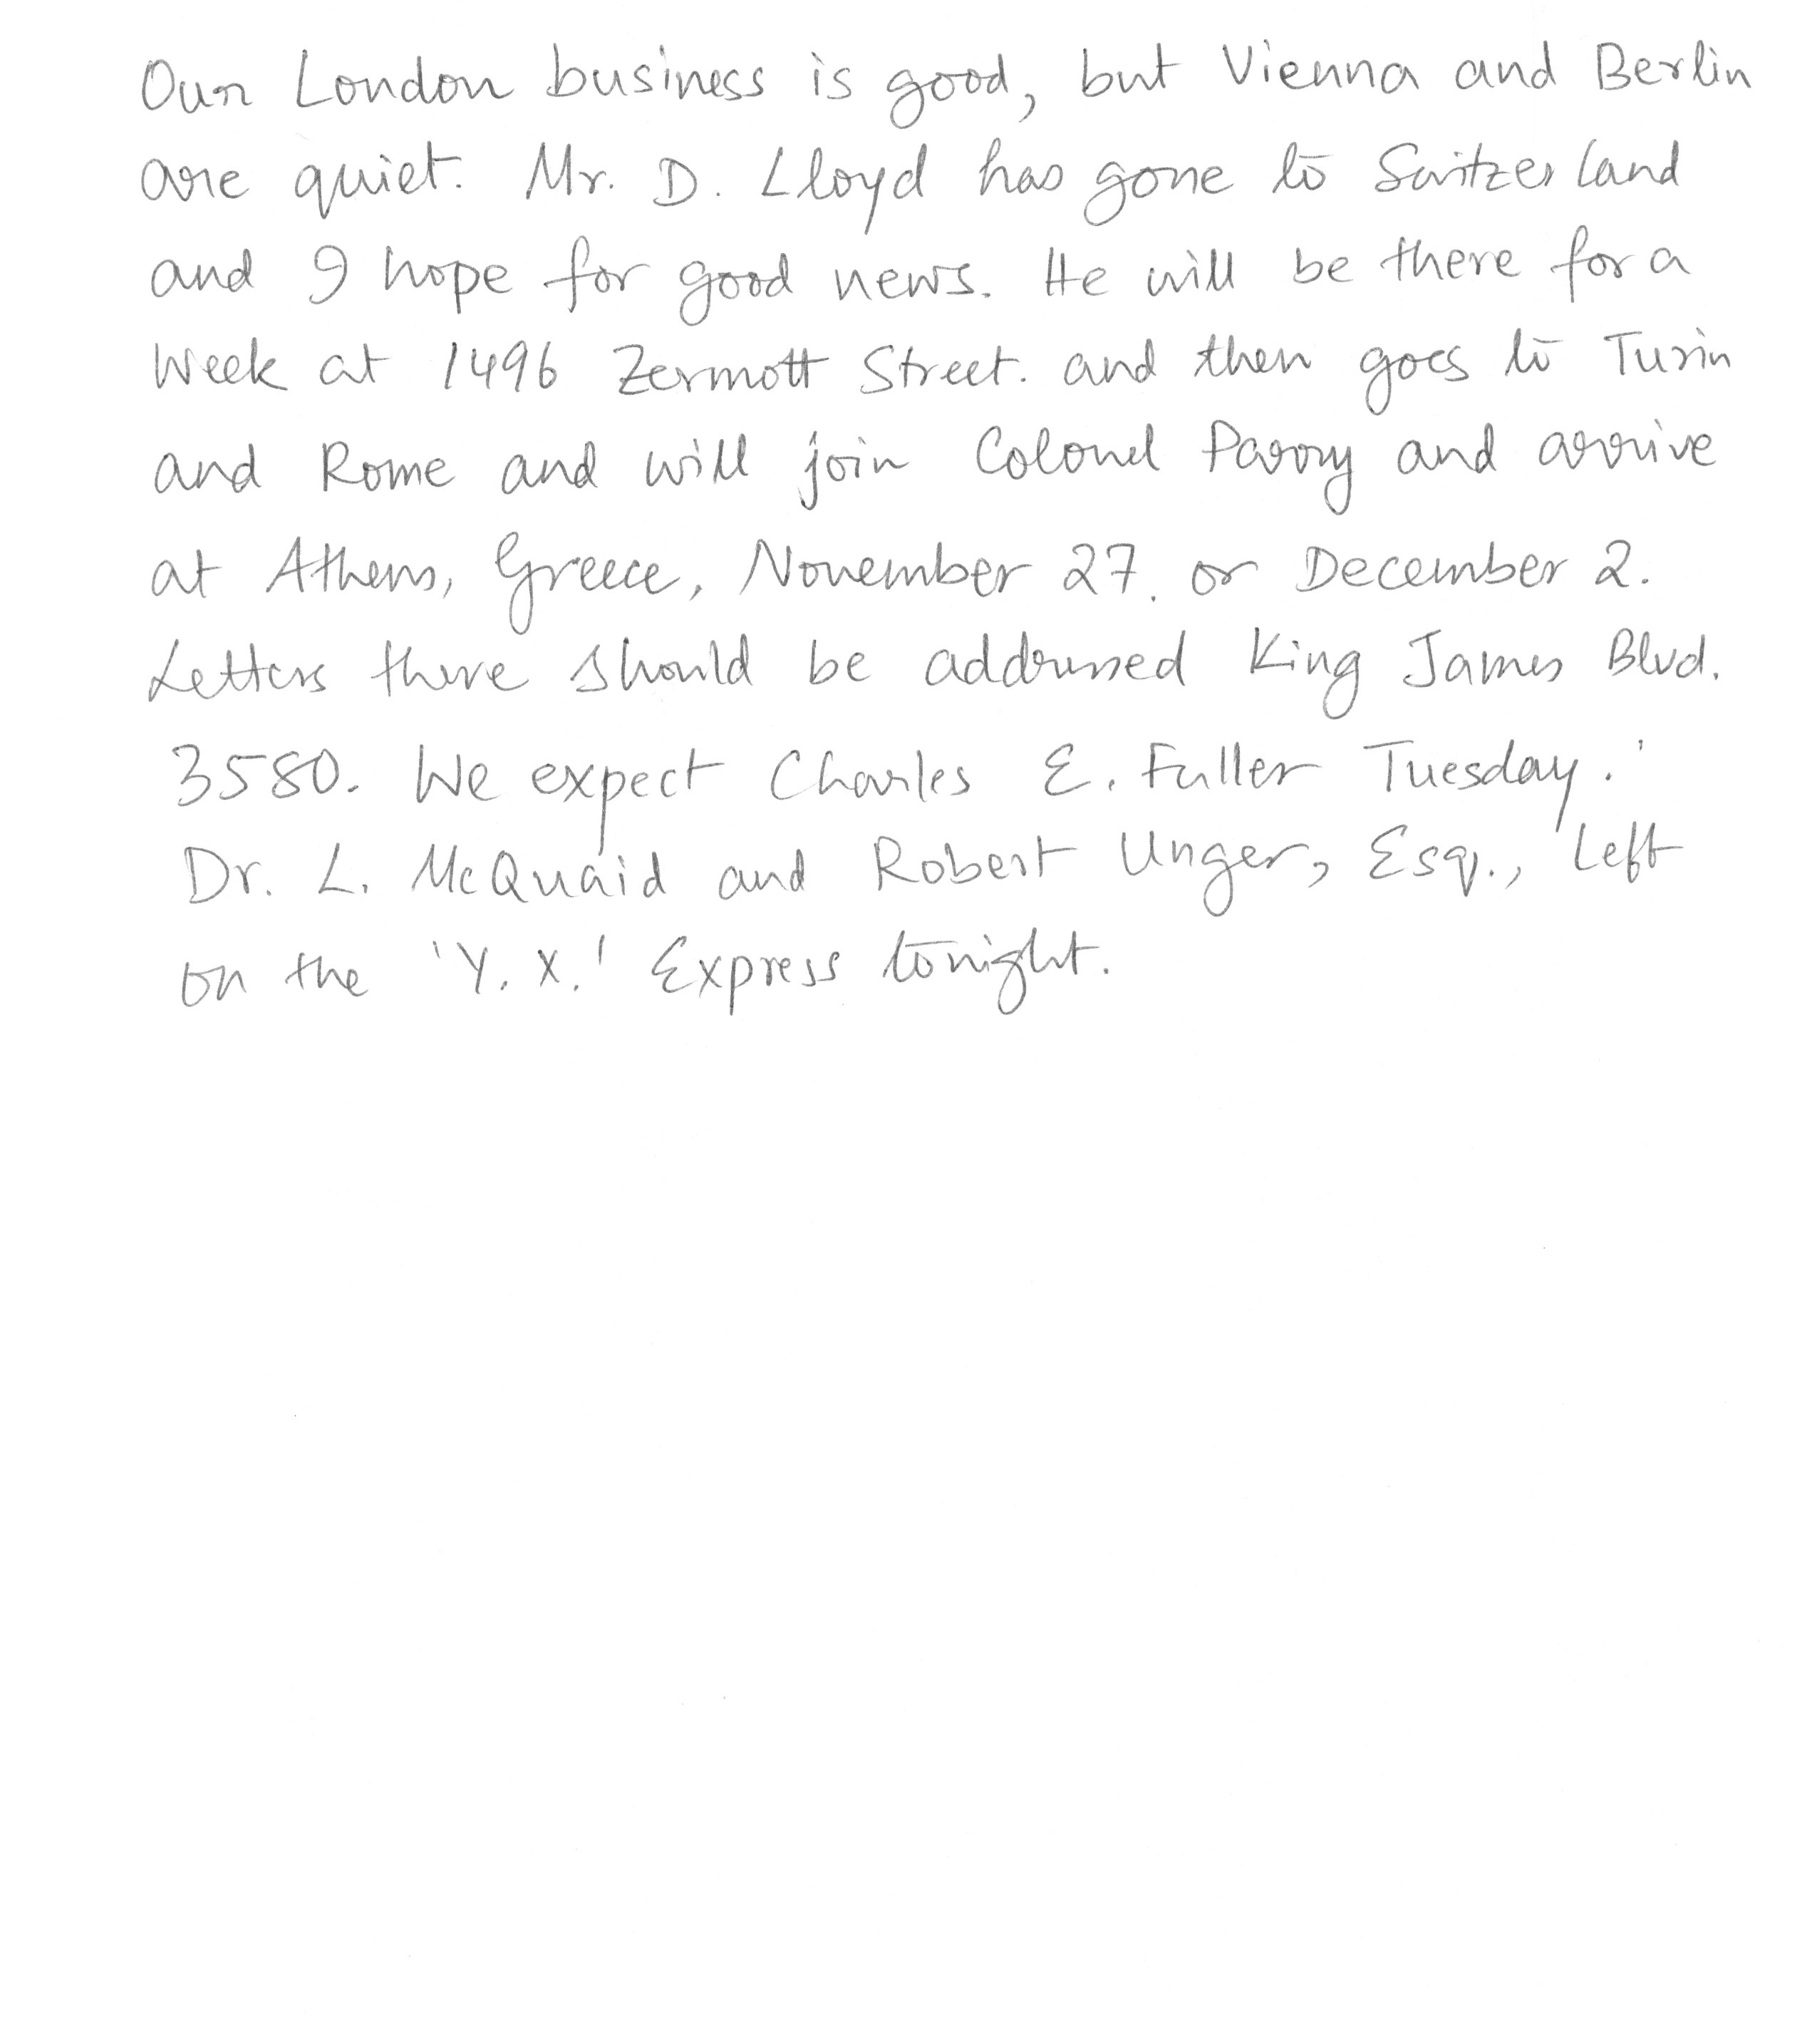 Our London business is good, but Vienna and Berlin
are quiet. Mr. D. Lloyd has gone to Switzerland
and I hope for good news. He will be there for a
week at 1496 Zermott Street. and then goes to Turin
and Rome and will join Colonel Parry and arrive
at Athens, Greece, November 27. or December 2.
Letters there should be addressed King James Blvd.
3580. We expect Charles E. Fuller Tuesday.
Dr. L. McQuaid and Robert Unger, Esq., left
on the 'Y. X.' Express tonight.